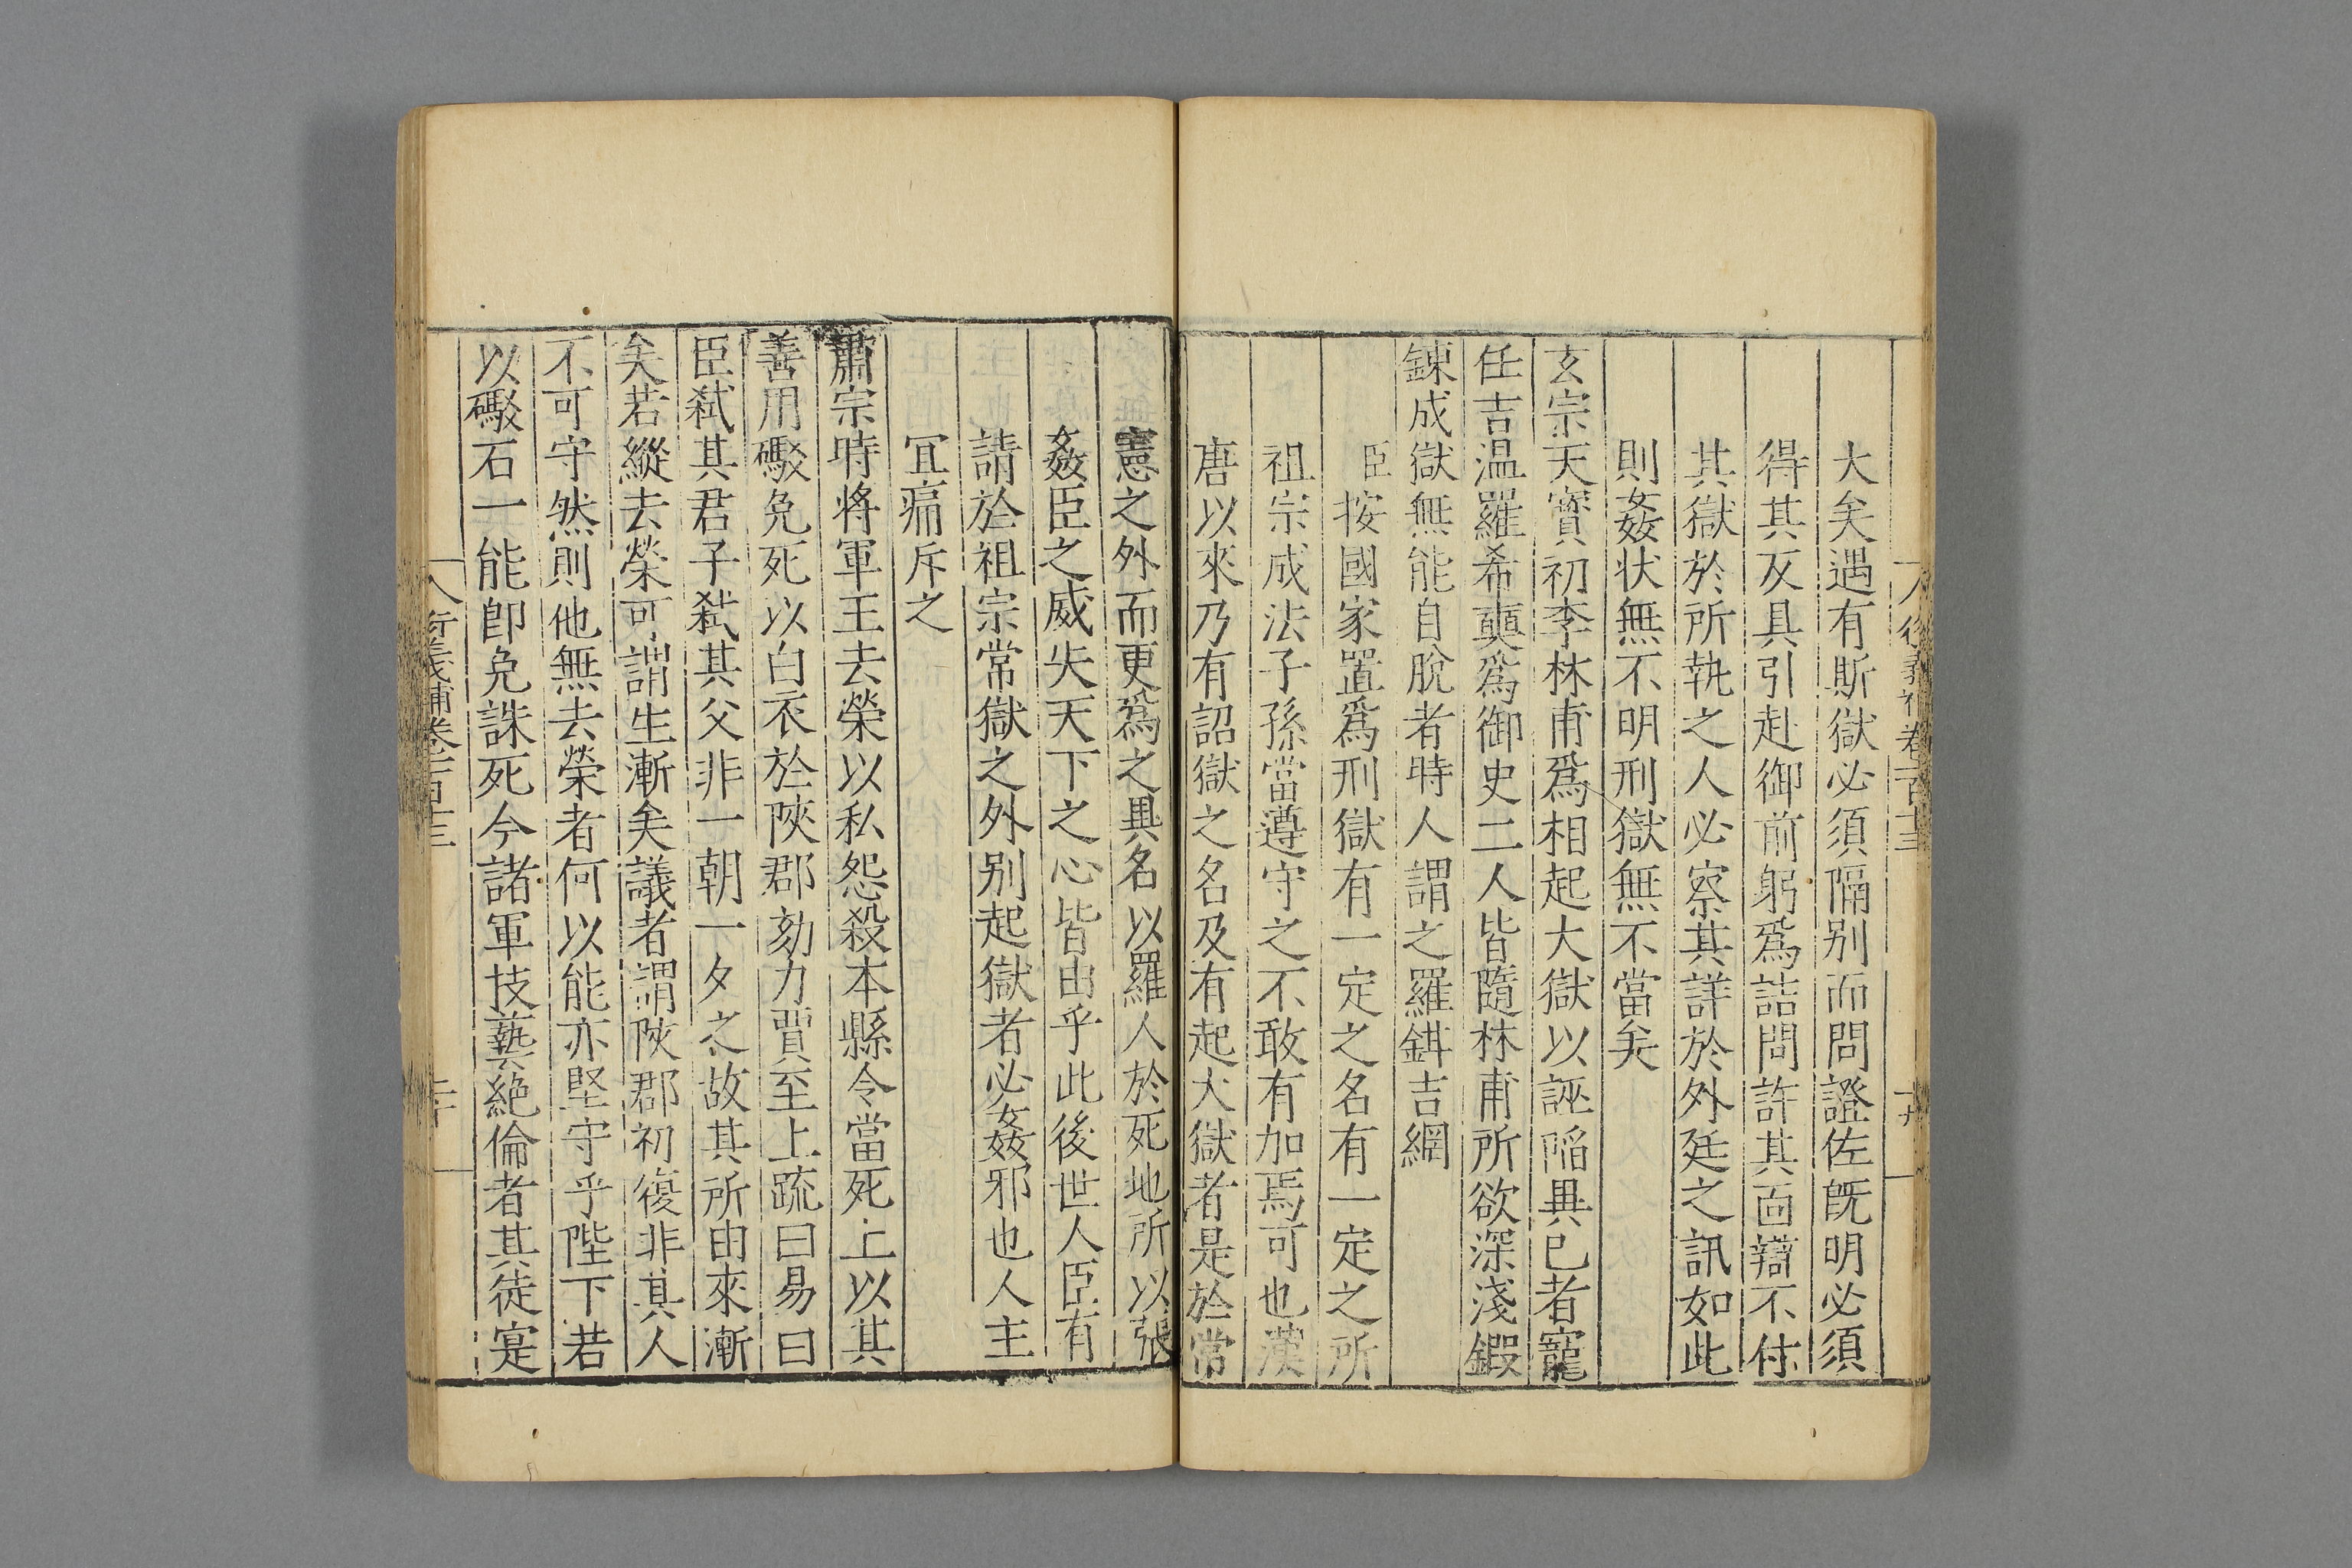 大矣遇有斯獄必須隔别而問證佐旣明必須
得其反具引赴御前躬爲詰問許其面辯不付
其獄於所執之人必察其詳於外廷之訊如此
則姦狀無不明刑獄無不當矣
玄宗天寶初李林甫爲相起大獄以誣陷異已者寵
任吉温羅希奭爲御史二人皆隨林甫所欲深淺鍜
錬成獄無能自脫者時人謂之羅鉗吉網
臣按國家置爲刑獄有一定之名有一定之所
祖宗成法子孫當遵守之不敢有加焉可也漢
唐以來乃有詔獄之名及有起大獄者是於常
憲之外而更爲之異名以羅人於死地所以張
姦臣之威失天下之心皆由乎此後世人臣有
請於祖宗常獄之外别起獄者必姦邪也人主
冝痛斥之
肅宗時將軍王去榮以私怨殺本縣令當死上以其
善用礮免死以白衣於陜郡効力賈至上疏曰易曰
臣弑其君子弑其父非一朝一夕之故其所由來漸
矣若縱去榮可謂生漸矣議者謂陜郡初復非其人
不可守然則他無去榮者何以能亦堅守乎陛下若
以礮石一能卽免誅死今諸軍技藝絶倫者其徒寔